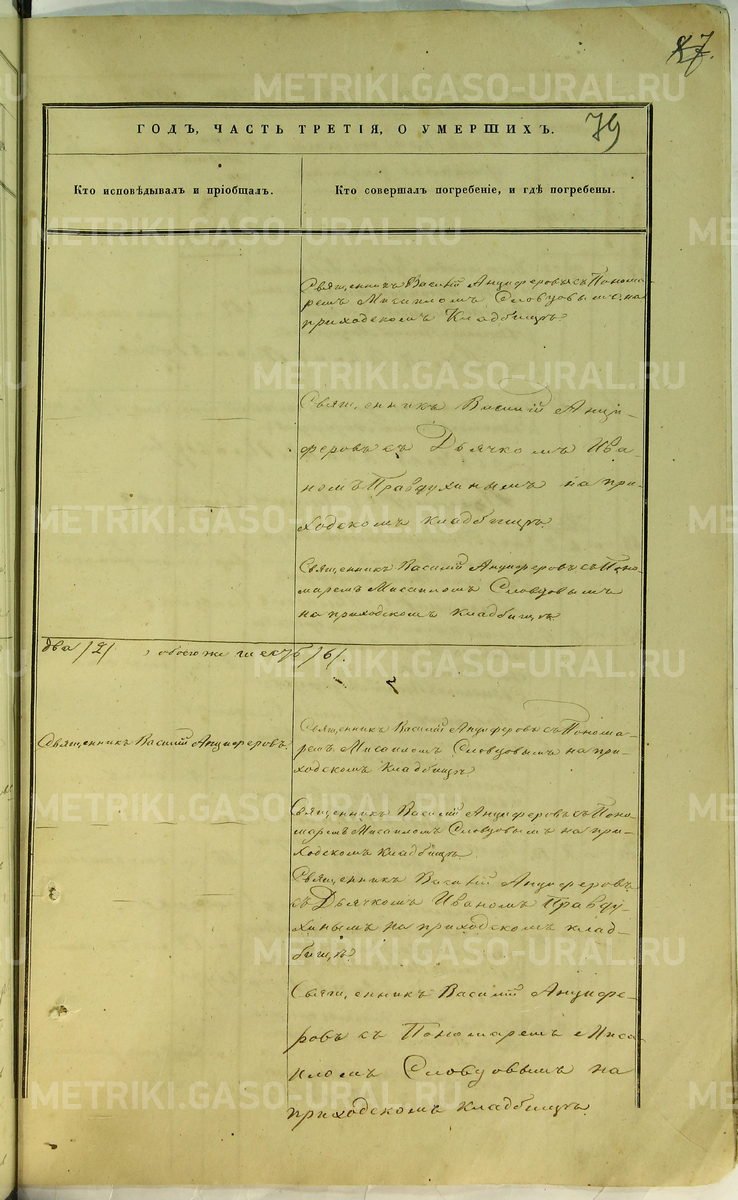 87.
79
ГОДЪ, ЧАСТЬ ТРЕТІЯ, О УМЕРШИХЪ.
Кто исповѣдывалъ и пріобщалъ.
Кто совершалъ погребеніе, и гдѣ погребены.
Священникъ Василій Анциферовъ съ Понома-
ремъ Мисаиломъ Словцовымъ на
приходскомъ Кладбищѣ
Священникъ Василій Анци-
феровъ съ Дьячкомъ Ива-
номъ Правдухинымъ на при-
ходскомъ кладбищѣ.
Священникъ Василій Анциферовъ съ Поно-
маремъ Мисаиломъ Словцовымъ
на приходскомъ кладбищѣ
два /2/, обоего же шесть /6/.
Священникъ Василій Анциферовъ
Священникъ Василій Анциферовъ съ Понома-
ремъ Мисаиломъ Словцовымъ на при-
ходскомъ Кладбищѣ
Священникъ Василій Анциферовъ съ Поно-
маремъ Мисаиломъ Словцовымъ на при-
ходскомъ Кладбищѣ.
Священникъ Василій Анциферовъ
съ Дьячкомъ Иваномъ Правду-
хинымъ на приходскомъ клад-
бищѣ
Священникъ Василій Анцифе-
ровъ съ Пономаремъ Миса-
иломъ Словцовымъ на
приходскомъ кладбищѣ.
METRIKI.GASO-URAL.RU
METRIKI.GASO-URAL.RU
METRIKI.GASO-URAL.RU
METRIKI.GASO-URAL.RU
METRIKI.GASO-URAL.RU
METRIKI.GASO-URAL.RU
METRIKI.GASO-URAL.RU
METRIKI.GASO-URAL.RU